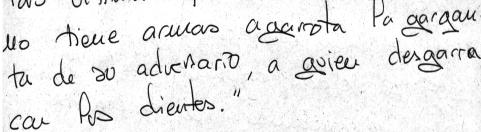 no tiene armas agarrota la gargan
ta de su adversario, a quien desgarra
con los dientes."